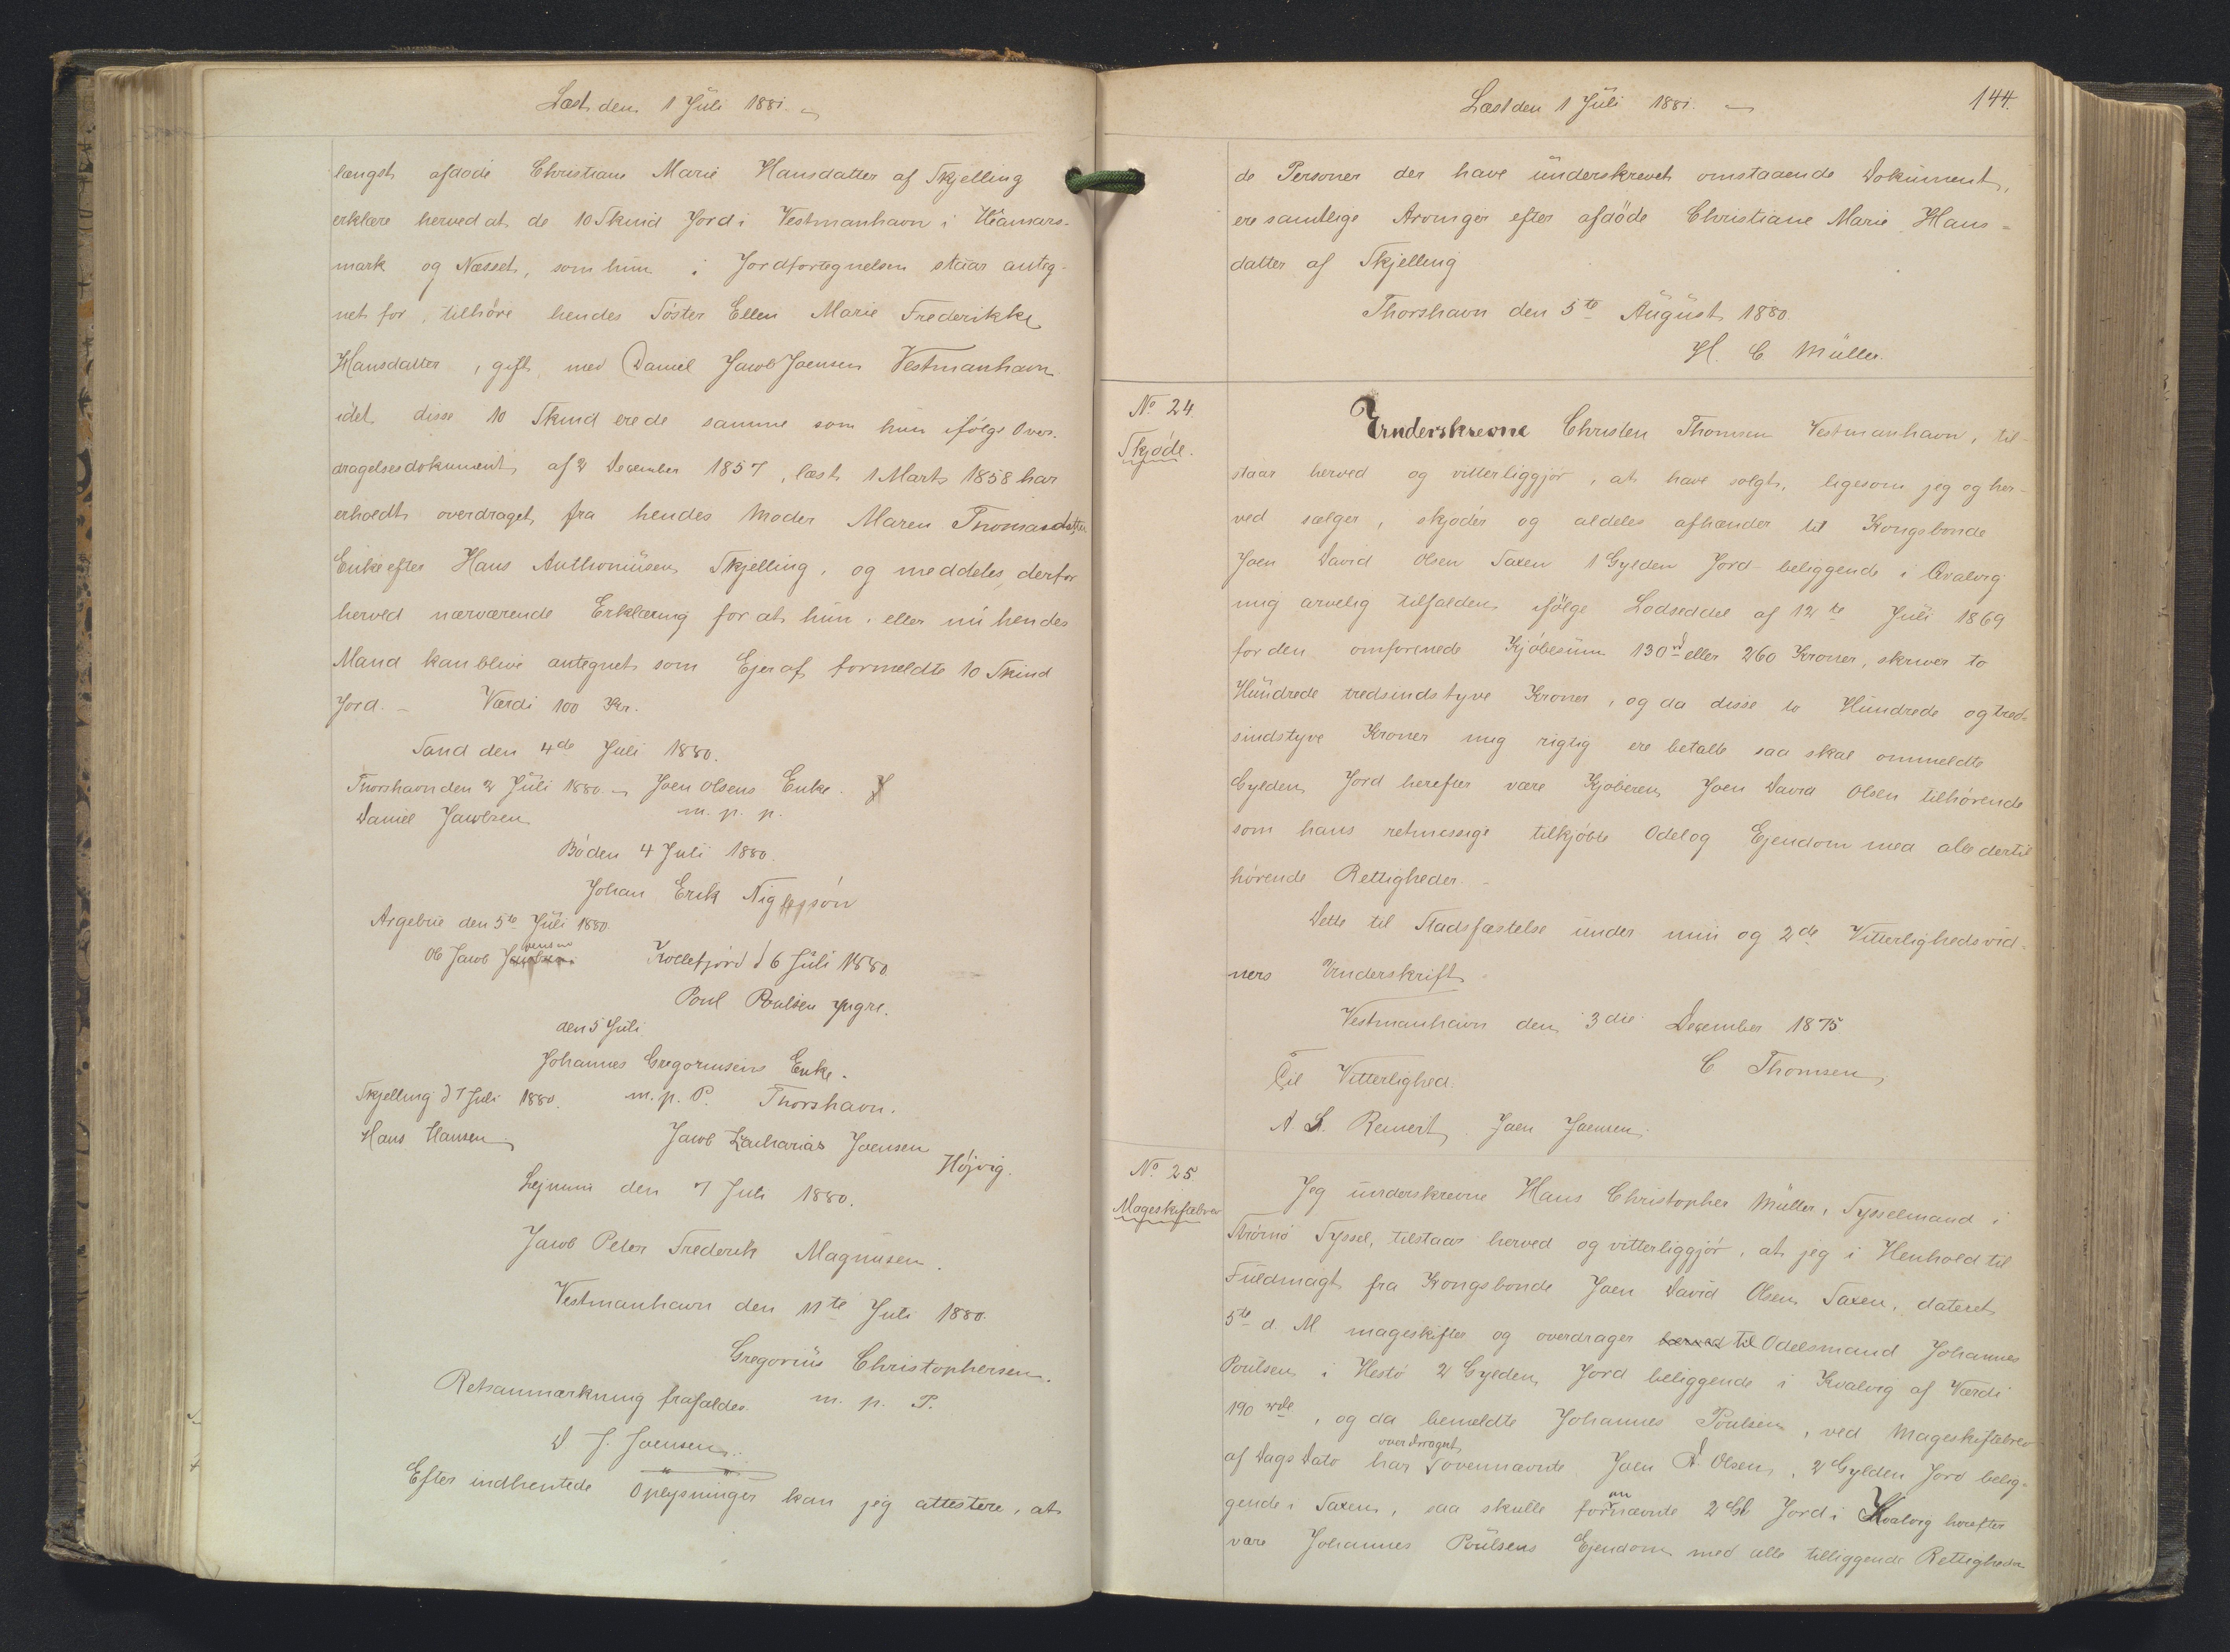 Læst den 1 Juli 1881.
længst afdøde Christiane Marie Hansdatter af Skjelling
erklære herved at de 10 Skind Jord i Vestmanhavn i Heamars-
mark og Næsset, som hun i Jordfortegnelsen staar anteg-
net for, tilhøre hendes Søster Ellen Marie Frederikke
Hansdatter, gift med Daniel Jacob Joensen Vestmanhavn
idet disse 10 Skind ere de samme som hun ifølge Over-
dragelsesdokument af 2 December 1857, læst 1 Marts 1858 har
erholdt overdraget fra hendes Moder Maren Thomasdatter
Enke efter Hans Anthoniusen Skjelling, og meddeles derfor
herved nærværende Erklæring for at hun, eller nu hendes
Mand kan blive antegnet som Ejer af formeldte 10 Skind
Jord. – Værdi 100 Kr.
Sand den 4de Juli 1880.
Thorshavn den 2 Juli 1880. Joen Olsens Enke.
Daniel Jacobsen m. p. p.
Bø den 4 Juli 1880.
Johan Erik
Argeboe den 5te Juli 1880.
Ole Jacob
Kollefjord d 6 Juli 1880
Poul Poulsen yngre.
den 5 Juli
Johannes Gregoriusens Enke.
Skjelling d 7 Juli 1880. m. p. P. Thorshavn.
Hans Hansen Jacob Zacharias Joensen
Højvig.
Lejnum den 7 Juli 1880.
Jacob Peter Frederik Magnusen.
Vestmanhavn den 11te Juli 1880.
Gregorius Christophersen.
Retsanmærkning frafaldes. m. p. P.
D. J. Joensen.
Efter indhentede Oplysninger kan jeg attestere, at
Læst den 1 Juli 1881. 144.
de Personer der have underskrevet omstaaende Dokument,
ere samtlige Arvinger efter afdøde Christiane Marie Hans-
datter af Skjelling
Thorshavn den 5te August 1880.
H. C Müller.
No 24.
Skjøde.
Underskrevne Christen Thomsen Vestmanhavn, til-
staar herved og vitterliggjør, at have solgt, ligesom jeg og her-
ved sælger, skjøder og aldeles afhænder til Kongsbonde
Joen David Olsen Saxen 1 Gylden Jord beliggende i Qvalvig
mig arvelig tilfalden ifølge Lodseddel af 12te Juli 1869
for den omforenede Kjøbesum 130 rd eller 260 Kroner, skriver to
Hundrede tredsindstyve Kroner, og da disse to Hundrede og tred-
sindstyve Kroner mig rigtig ere betalte saa skal ommeldte
Gylden Jord herefter være Kjøberen Joen David Olsen tilhørende
som hans retmessige tilkjøbte Odel og Ejendom med alle dertil
hørende Rettigheder. –
Dette til Stadsfæstelse under min og 2de Vitterlighedsvid-
ners Underskrift
Vestmanhavn den 3die December 1875
C Thomsen
Til Vitterlighed.
A. S. Reinert. Joen Joensen.
No 25.
Mageskiftebrev
Jeg underskrevne Hans Christopher Müller, Sysselmand i
Strømø Syssel, tilstaar herved og vitterliggjør, at jeg i Henhold til
Fuldmagt fra Kongsbonde Joen David Olsen Saxen, dateret
5te d. M mageskifter og overdrager herved til Odelsmand Johannes
Poulsen i Hestø 2 Gylden Jord beliggende i Kvalvig af Værdi
190 , og da bemeldte Johannes Poulsen, ved Mageskiftebrev
af Dags Dato har overdraget ovennævnte Joen D. Olsen, 2 Gylden Jord belig-
gende i Saxen, saa skulle fornævnte 2 Gl Jord i Kvalvig herefter
være Johannes Poulsens Ejendom med alle tilliggende Rettigheder